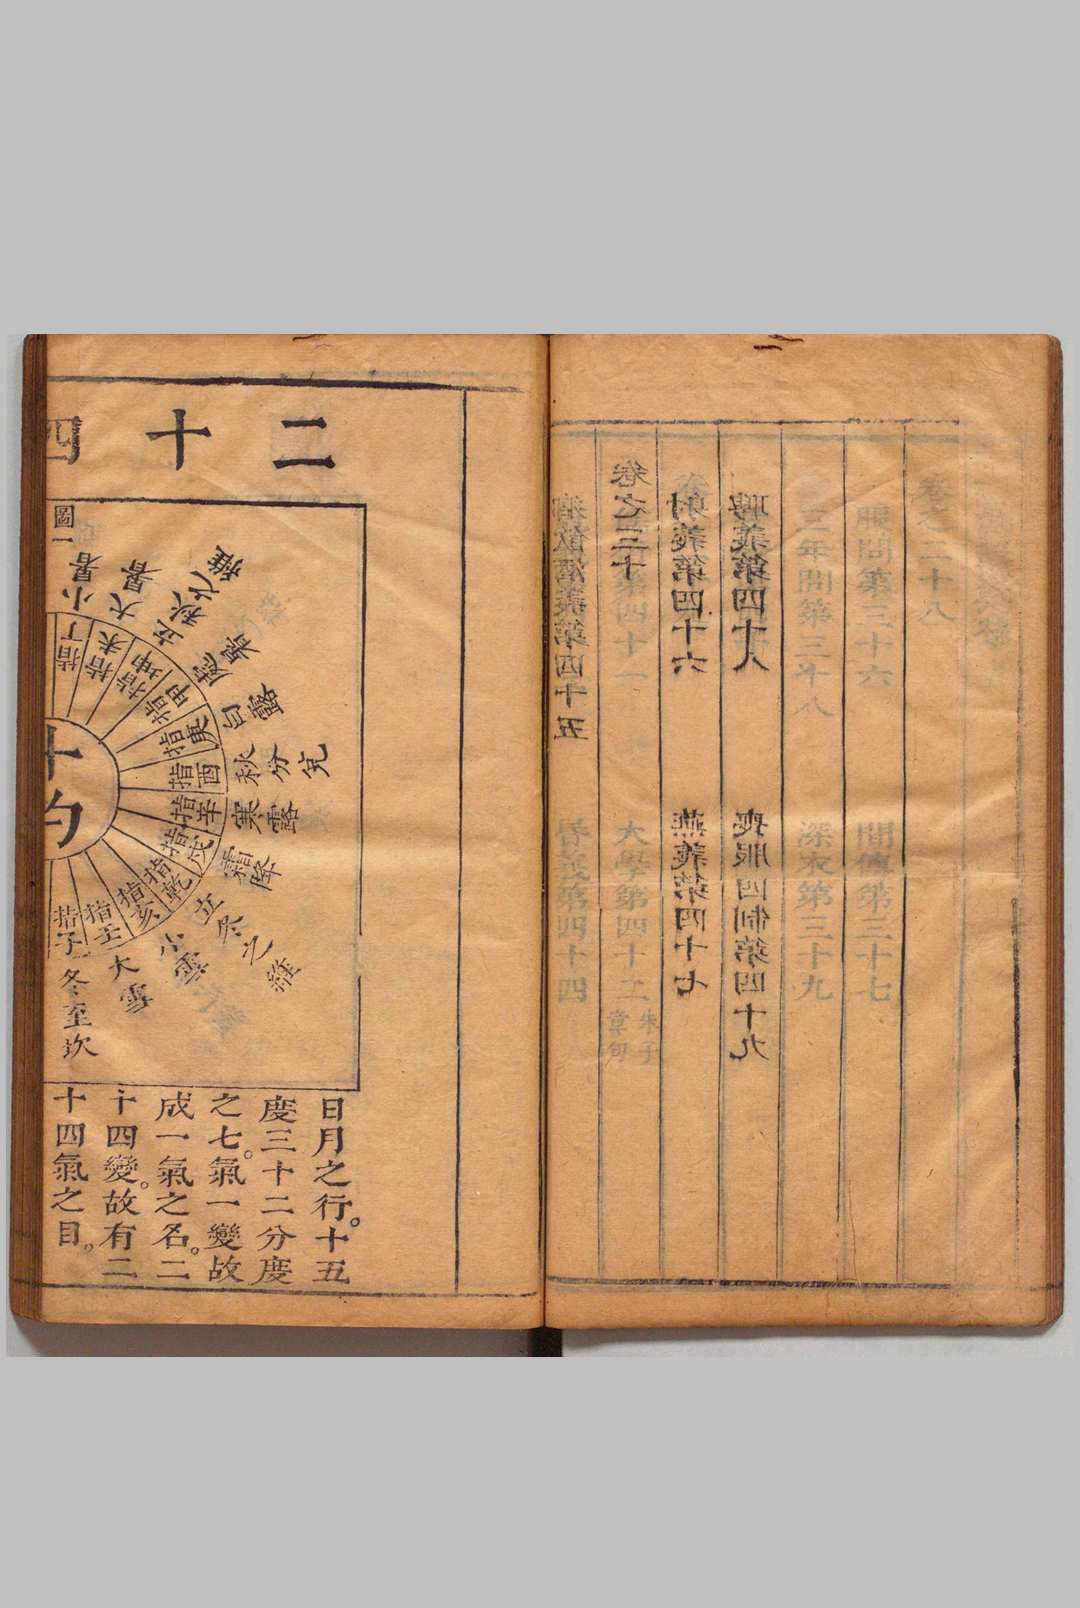 卷之二十八
服問第三十六 間傳第三十七
三年問第三十八 深衣第三十九
聘義第四十八 喪服四制第四十九
射義第四十六 燕義第四十七
卷之三十
第四十一 大學第四十二 朱子章句
鄉飲酒義第四十五
昏義第四十四
二十四
圖一
小暑
指丁
大暑
指未
立秋之維
指坤
處暑
指申
白露
指庚
秋分 兌
指酉
寒露
指辛
霜降
指戌
立冬之維
指乾
小雪
指亥
大雪
指壬
冬至坎
指子
日月之行。十五
度三十二分度
之七。氣一變故
成一氣之名。二
十四變。故有二
十四氣之目。